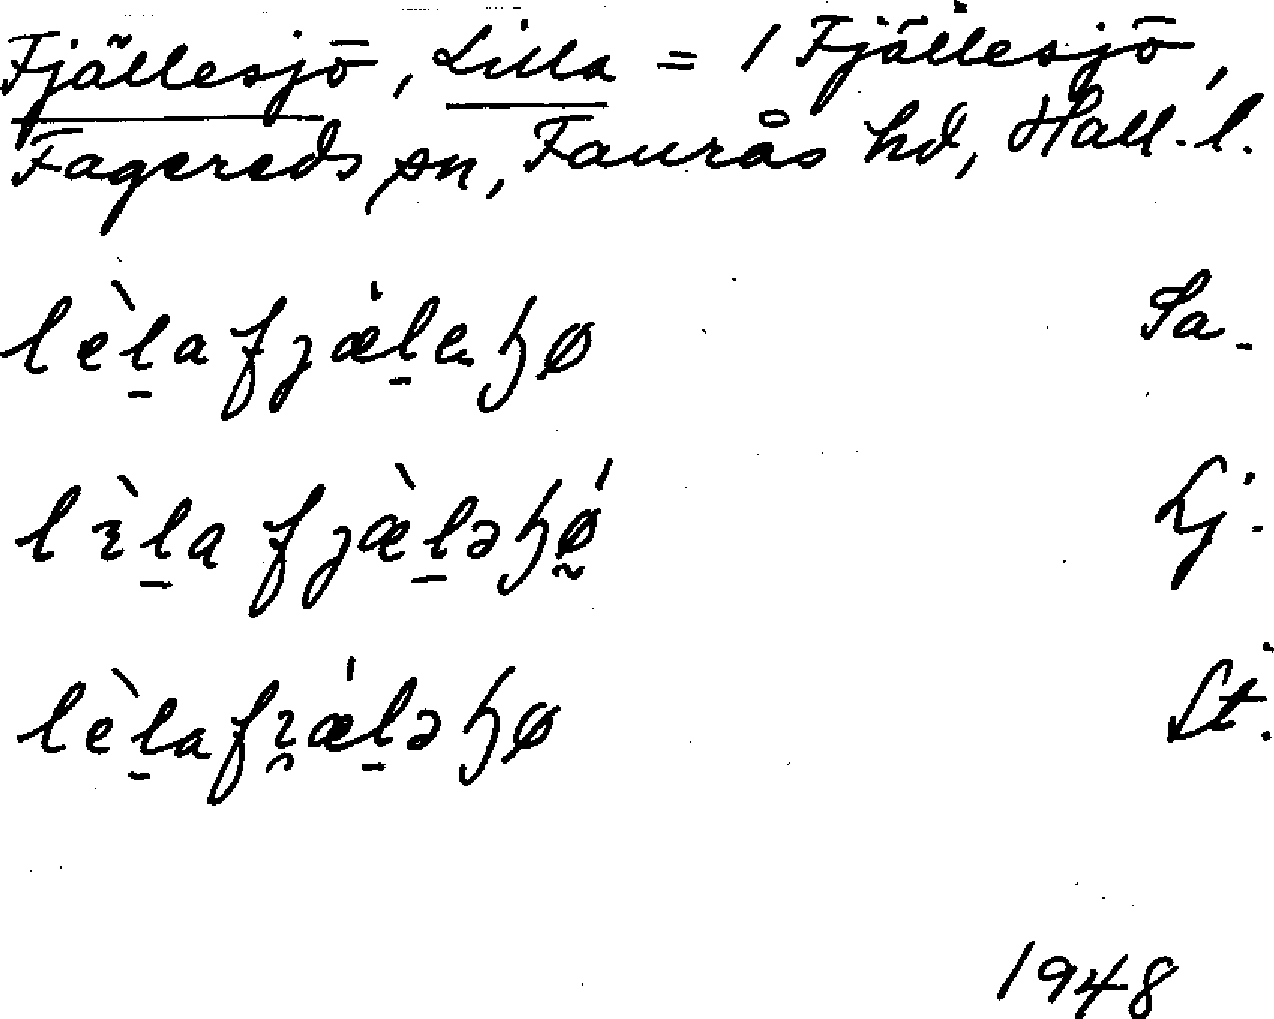 Fjällesjö, Lilla = 1 Fjällesjö,
Fagereds sn, Faurås hd, Hall. l.
lèl̠a fȷæ̍l̠eꜧø Sa.
lɪ̀l̠a fȷæ̀l̠əꜧǿ̰ Lj.
lèl̠afɪ̯æ̍l̠əꜧø St.
1948